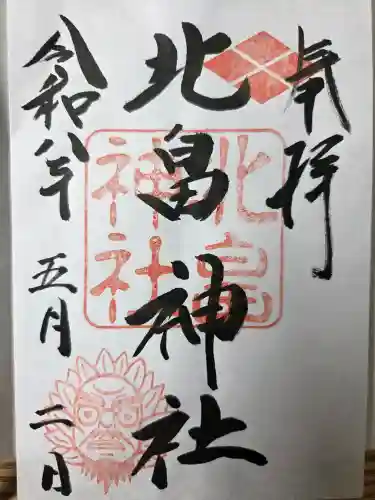 奉拝
北畠神社
北畠神社
令和八年
五月
二日